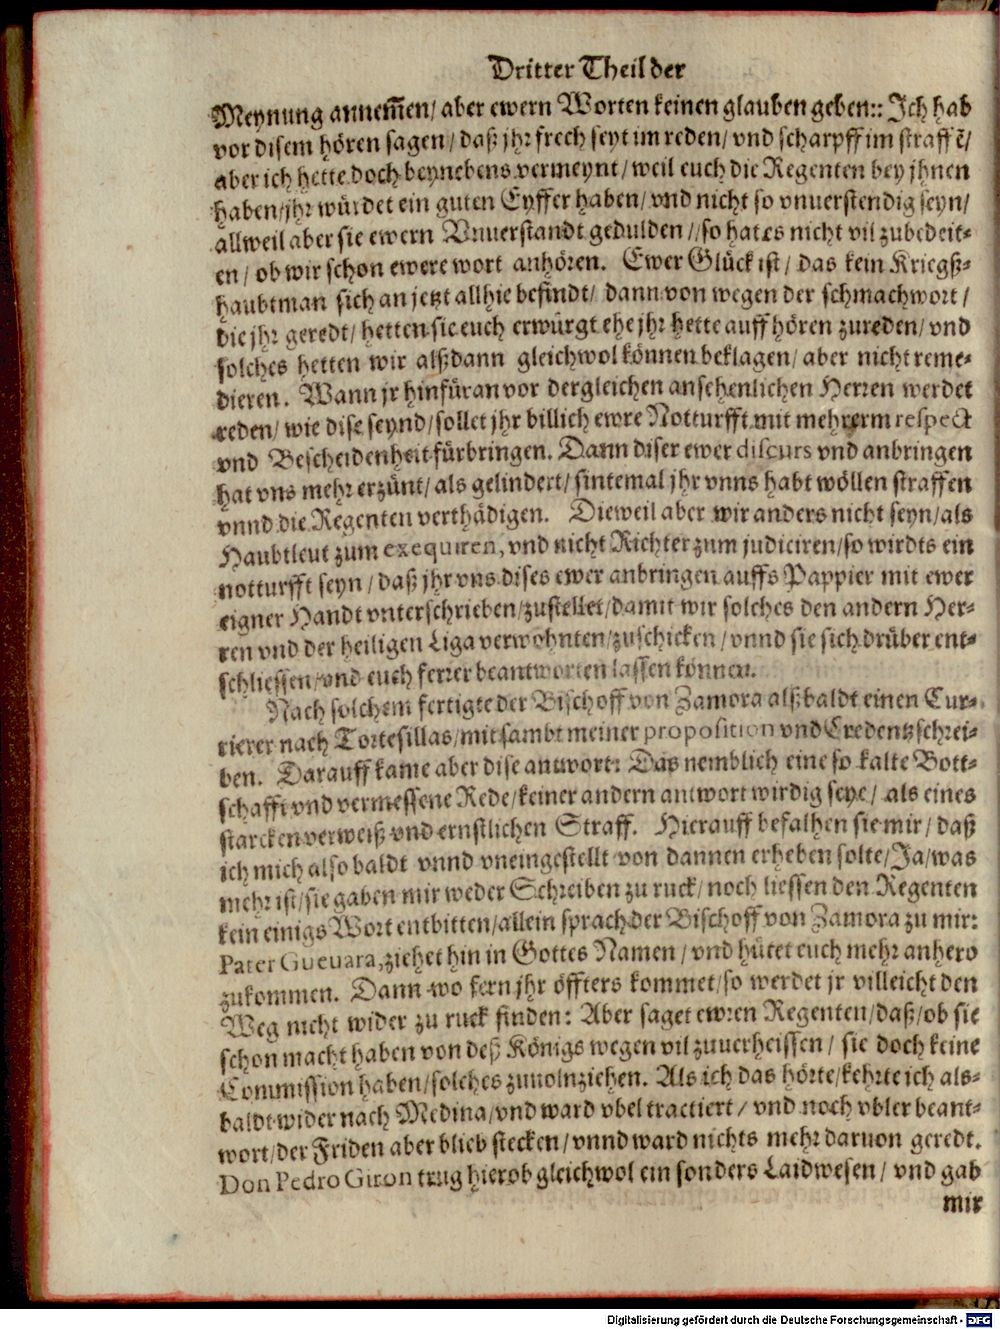 Dritter Theil der
Meynung annem̃en/ aber ewern Worten keinen glauben geben:: Ich hab
vor disem hören sagen/ daß jhr frech seyt im reden/ vnd scharpff im straffẽ/
aber ich hette doch beynebens vermeynt/ weil euch die Regenten bey jhnen
haben/ jhr würdet ein guten Eyffer haben/ vnd nicht so vnuerstendig seyn/
allweil aber sie ewern Vnuerstandt gedulden// so hat es nicht vil zubedeit-
en/ ob wir schon ewere wort anhören. Ewer Glück ist/ das kein Kriegß-
haubtman sich an jetzt allhie befindt/ dann von wegen der schmachwort/
die jhr geredt/ hetten sie euch erwürgt ehe jhr hette auffhören zureden/ vnd
solches hetten wir alßdann gleichwol können beklagen/ aber nicht reme-
dieren. Wann jr hinfüran vor dergleichen ansehenlichen Herren werdet
reden/ wie dise seynd/ sollet jhr billich ewre Notturfft mit mehrerm respect
vnd Bescheidenheit fürbringen. Dann diser ewer discurs vnd anbringen
hat vns mehr erzünt/ als gelindert/ sintemal jhr vnns habt wöllen straffen
vnnd die Regenten verthädigen. Dieweil aber wir anders nicht seyn/ als
Haubtleut zum exequiren, vnd nicht Richter zum judiciren/ so wirdts ein
notturfft seyn/ daß jhr vns dises ewer anbringen auffs Pappier mit ewer
eigner Handt vnterschrieben/ zustellet/ damit wir solches den andern Her-
ren vnd der heiligen Liga verwohnten/ zuschicken/ vnnd sie sich drüber ent-
schliessen/ vnd euch ferrer beantworten lassen können.
Nach solchem fertigte der Bischoff von Zamora alßbaldt einen Cur-
rierer nach Tortesillas/ mit sambt meiner proposition vnd Credentzschrei-
ben. Darauff kame aber dise antwort: Das nemblich eine so kalte Bott-
schafft vnd vermessene Rede/ keiner andern antwort wirdig seye/ als eines
starcken verweiß vnd ernstlichen Straff. Hierauff befalhen sie mir/ daß
ich mich also baldt vnnd vneingestellt von dannen erheben solte/ Ja/ was
mehr ist/ sie gaben mir weder Schreiben zu ruck/ noch liessen den Regenten
kein einigs Wort entbitten/ allein sprach der Bischoff von Zamora zu mir:
Pater Gueuara, ziehet hin in Gottes Namen/ vnd hütet euch mehr anhero
zukommen. Dann wo fern jhr öffters kommet/ so werdet jr villeicht den
Weg nicht wider zu ruck finden: Aber saget ewren Regenten/ daß/ ob sie
schon macht haben von deß Königs wegen vil zuuerheissen/ sie doch keine
Commission haben/ solches zuuolnziehen. Als ich das hörte/ kehrte ich als-
baldt wider nach Medina/ vnd ward vbel tractiert/ vnd noch vbler beant-
wort/ der Friden aber blieb stecken/ vnnd ward nichts mehr daruon geredt.
Don Pedro Giron trug hierob gleichwol ein sonders Laidwesen/ vnd gab
mir
Digitalisierung gefördert durch die Deutsche Forschungsgemeinschaft - DFG